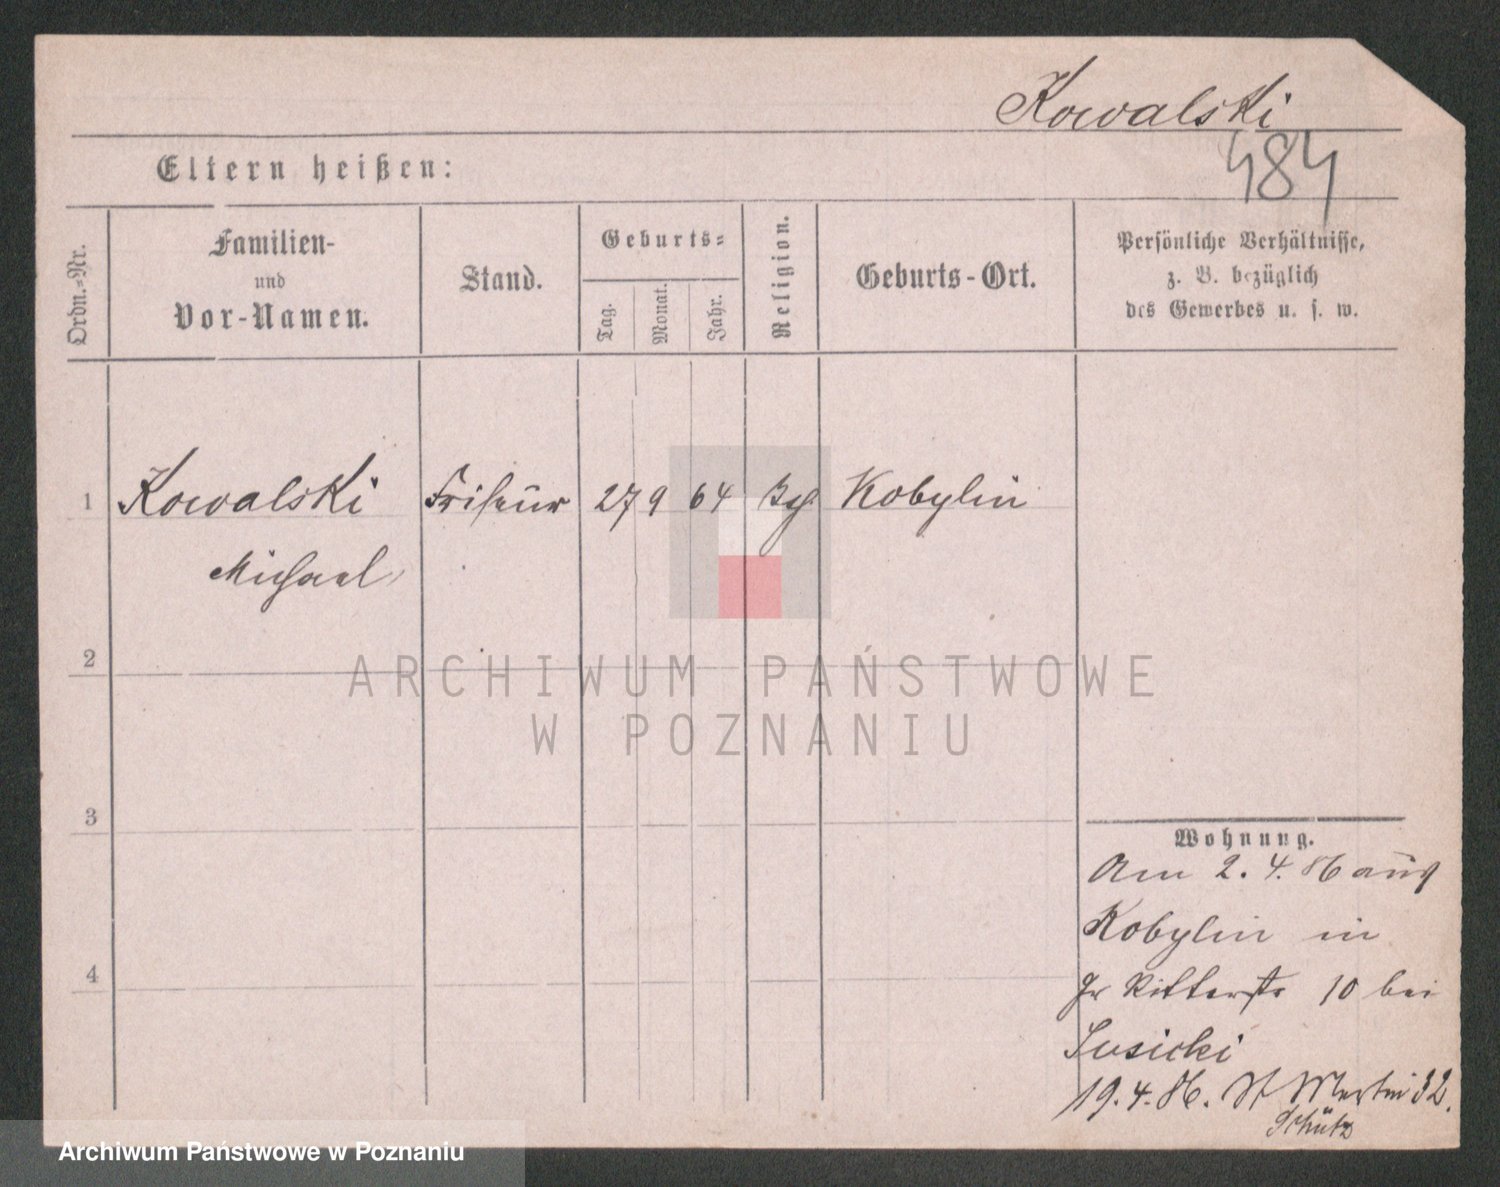 Kowalski
484
Eltern heißen:
Ordn.-Nr.
Familien-
und
Vor-Namen.
Stand.
Geburts-
Tag.
Monat.
Jahr.
Religion.
Geburts-Ort.
Persönliche Verhältnisse,
z. B. bezüglich
des Gewerbes u. s. w.
1 Kowalski Friseur 27 9 64 Kobylin
Michael
2
3
4
Wohnung.
Am 2. 4. 86 aus
Kobylin in
Gr Ritterstr 10 bei
Susicki
19. 4. 86. St Martin 32.
Schütz
ARCHIWUM PAŃSTWOWE
W POZNANIU
Archiwum Państwowe w Poznaniu